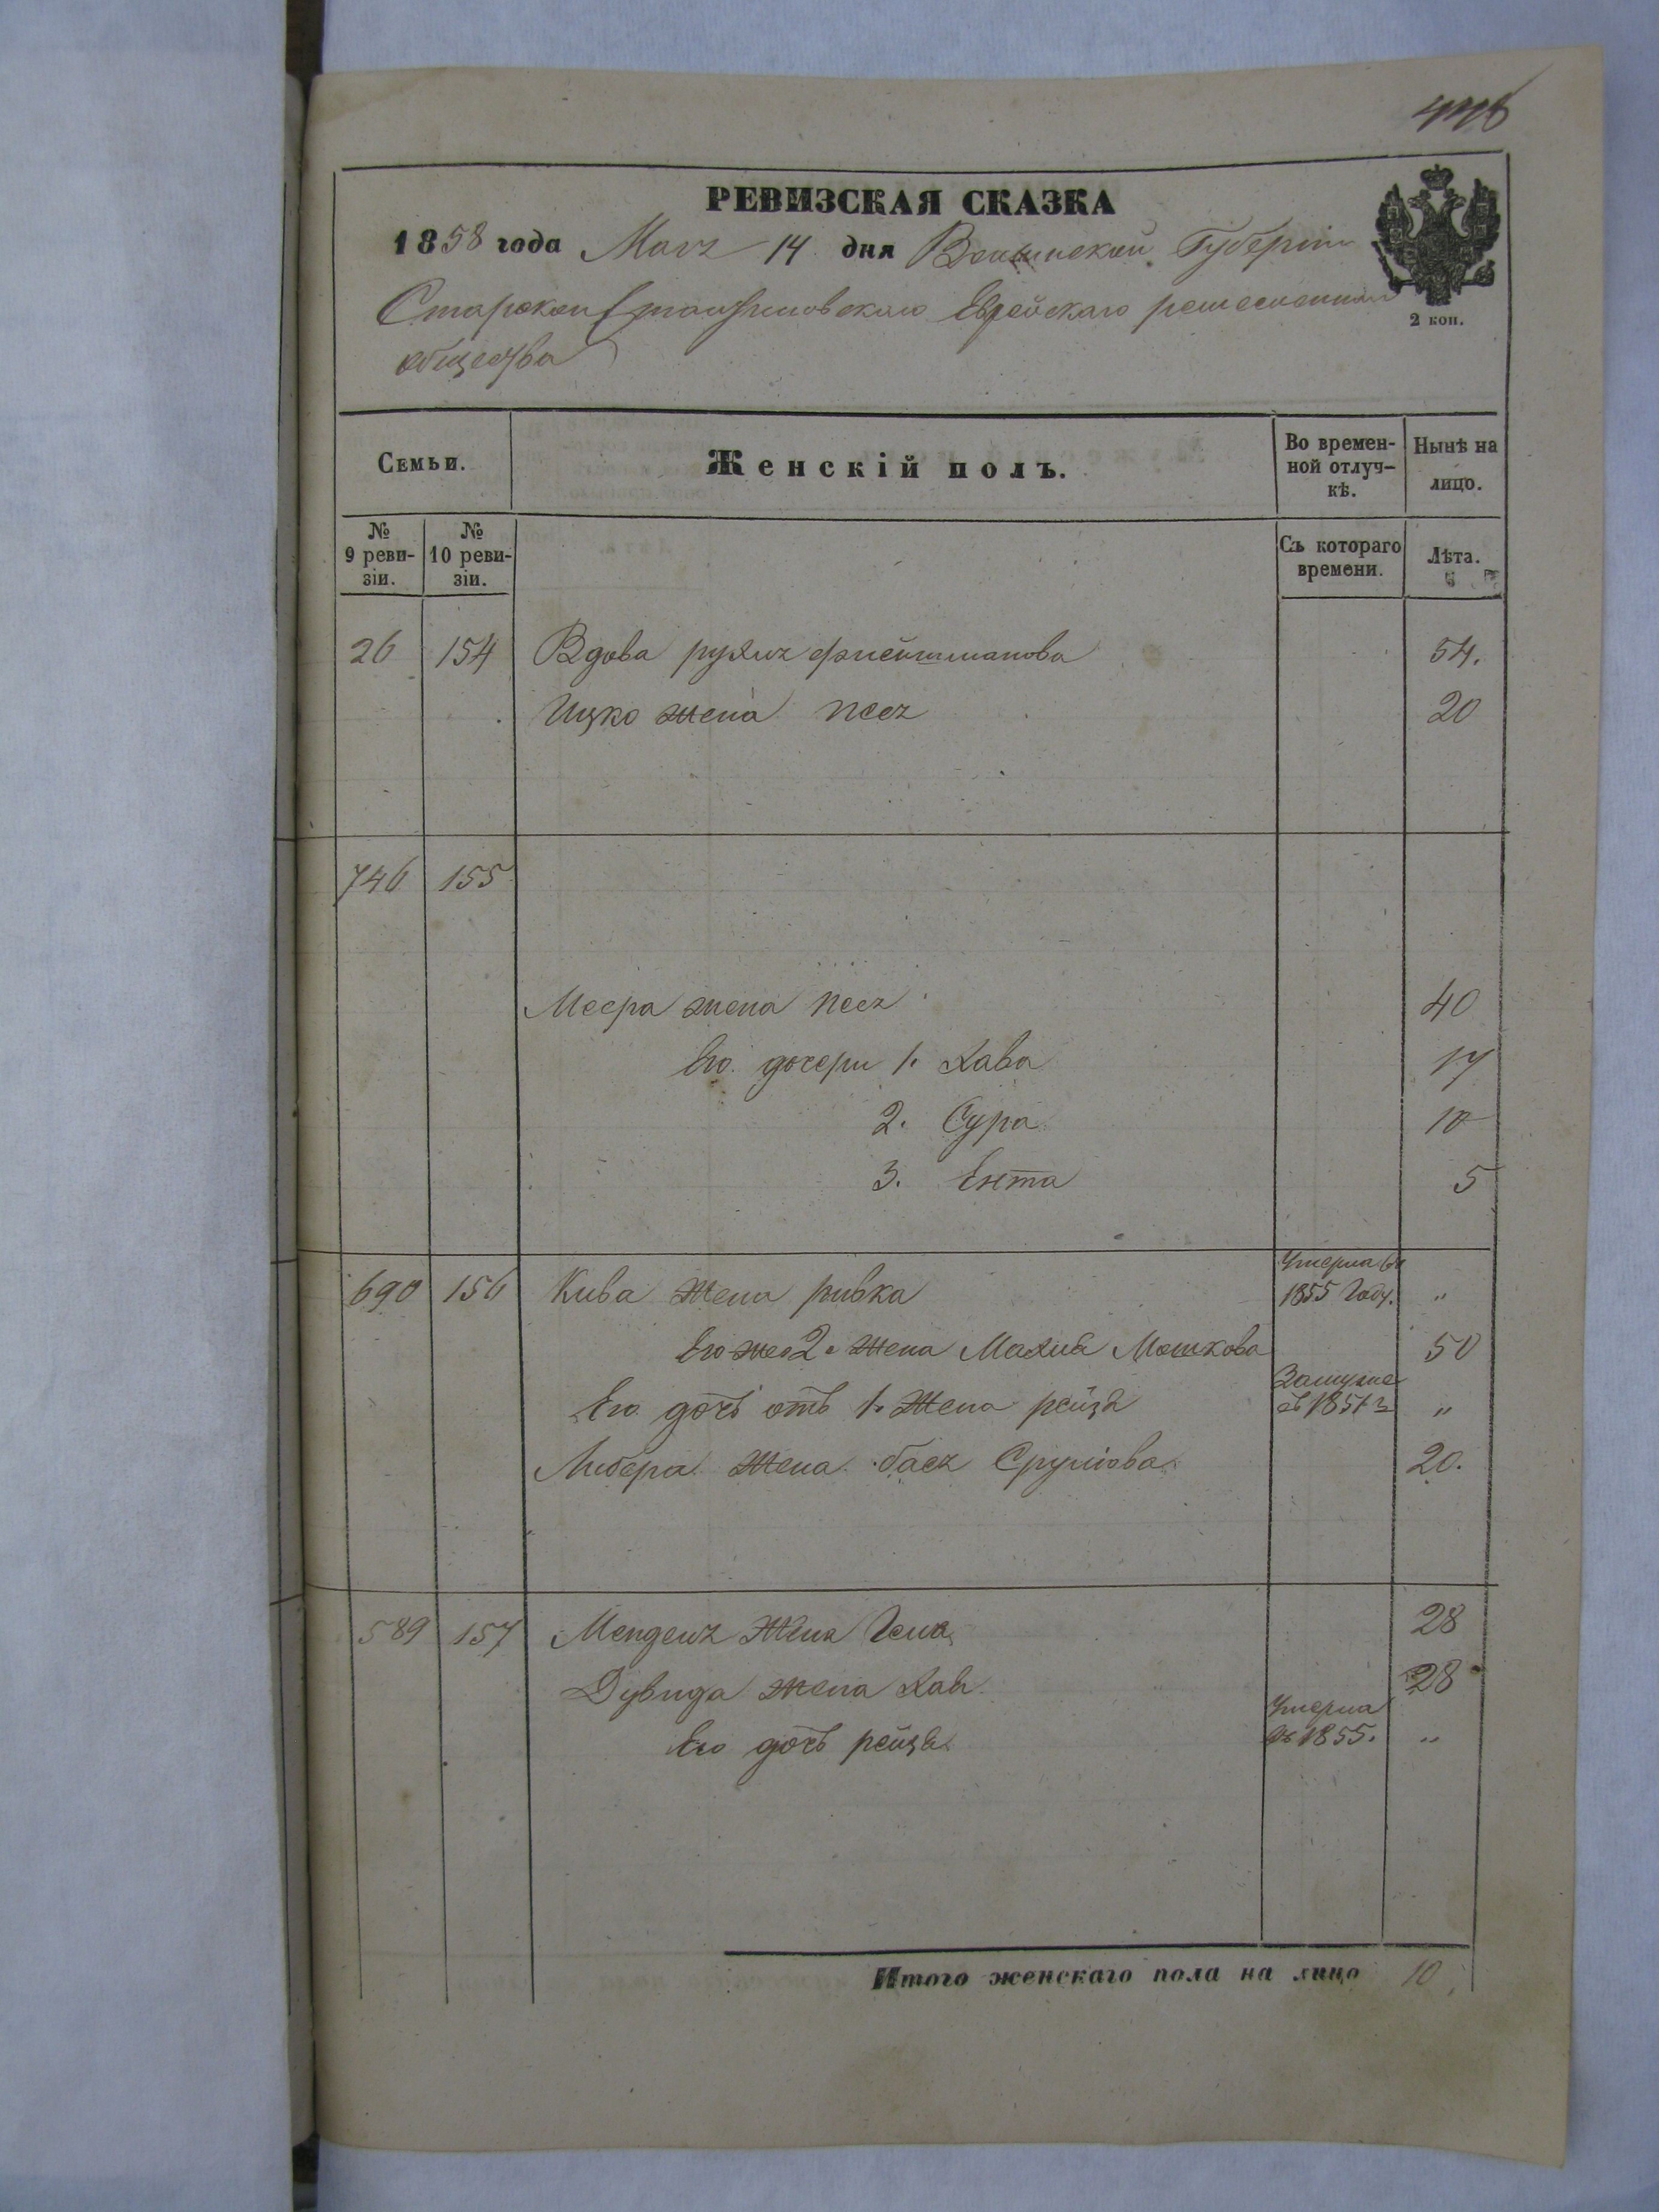 РЕВИЗСКАЯ СКАЗКА
1858 года Мая 14 дня Волынской Губерніи
Еврейскаго
общества
2 коп.
Семьи.
Женскій полъ.
Во времен-
ной отлуч-
кѣ.
Нынѣ на
лицо.
№
9 реви-
зіи.
№
10 реви-
зіи.
Съ котораго
времени.
Лѣта.
26 154 Вдова 54.
Ицко жена песя 20
746 155
Меера жена песя 40
Его дочери 1. Хава 17
2. Сура 10
3. Ента 5
690 156 Кива жена ривка Умерла въ 1855 Году. "
Его же 2. жена Мошкова 50
Его дочь отъ 1. жена рейза Замужне въ 1851 г "
Либера жена бася Срулiова 20.
589 157 Мендель жена 28
Дувида жена Хава 28
Его дочь рейза Умерла въ 1855. "
Итого женскаго пола на лицо 10